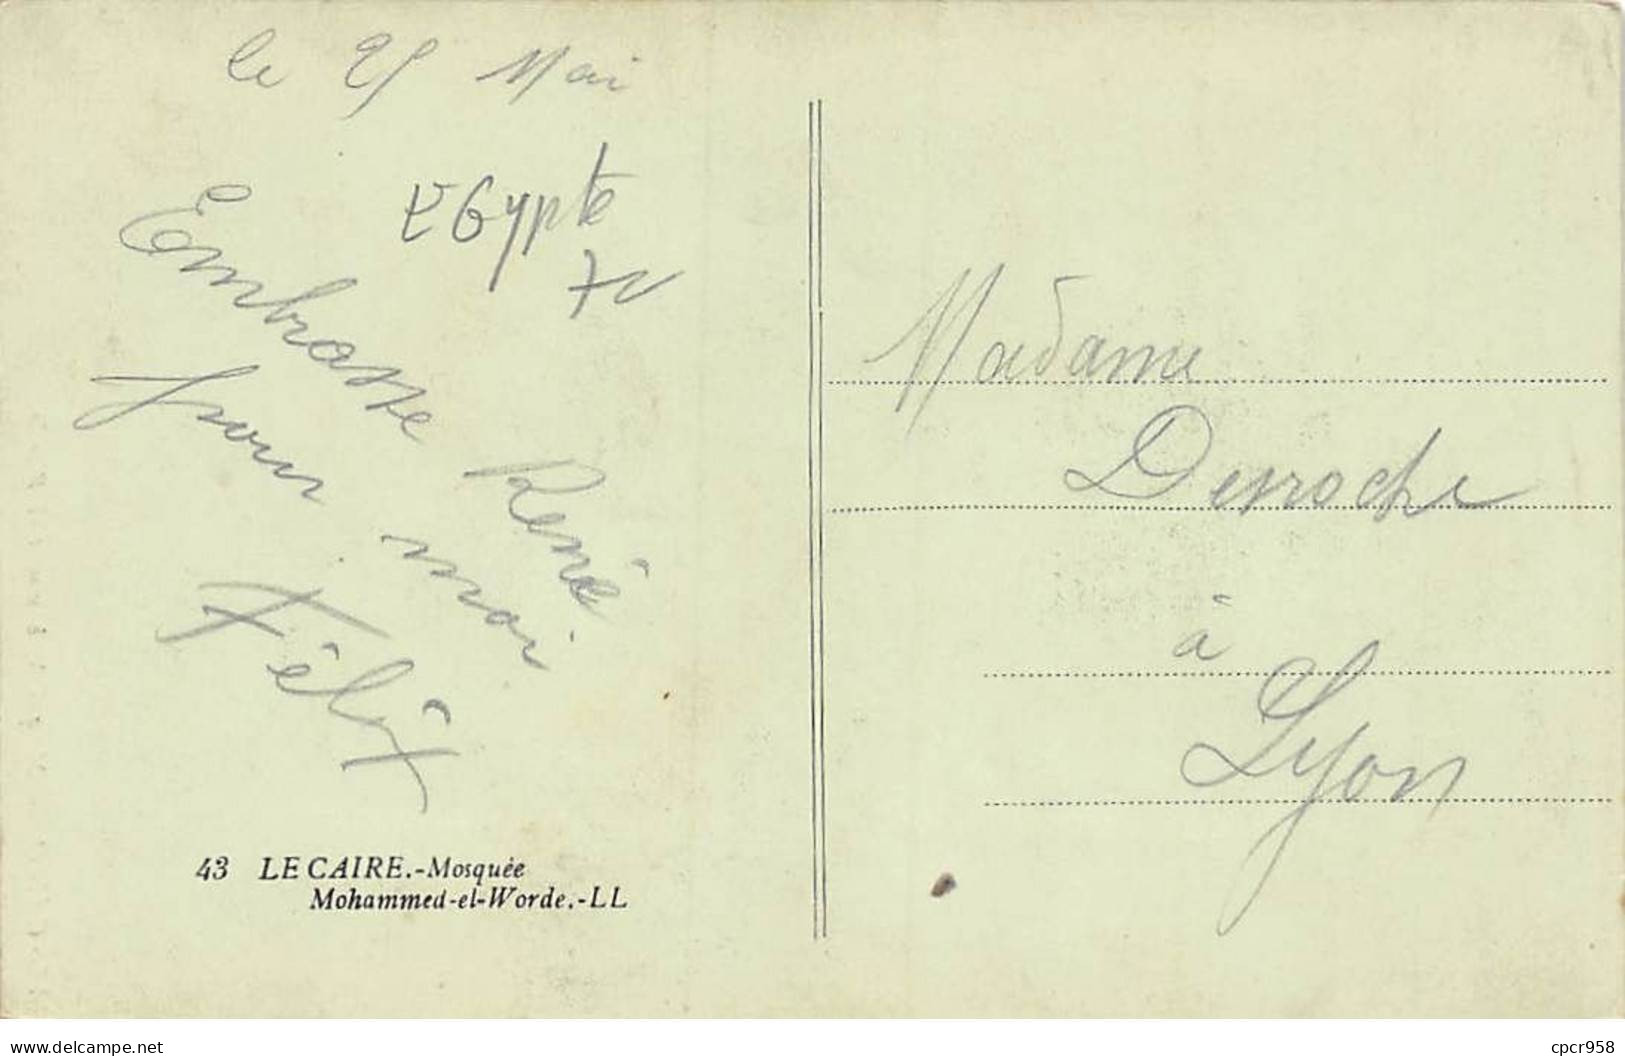 le 25 Mai
EGypte
Embrasse René
pour moi
Félix
43 LE CAIRE.-Mosquée
Mohammed-el-Worde.-LL
Madame
Desroche
à
Lyon
delcampe.net
cpcr958